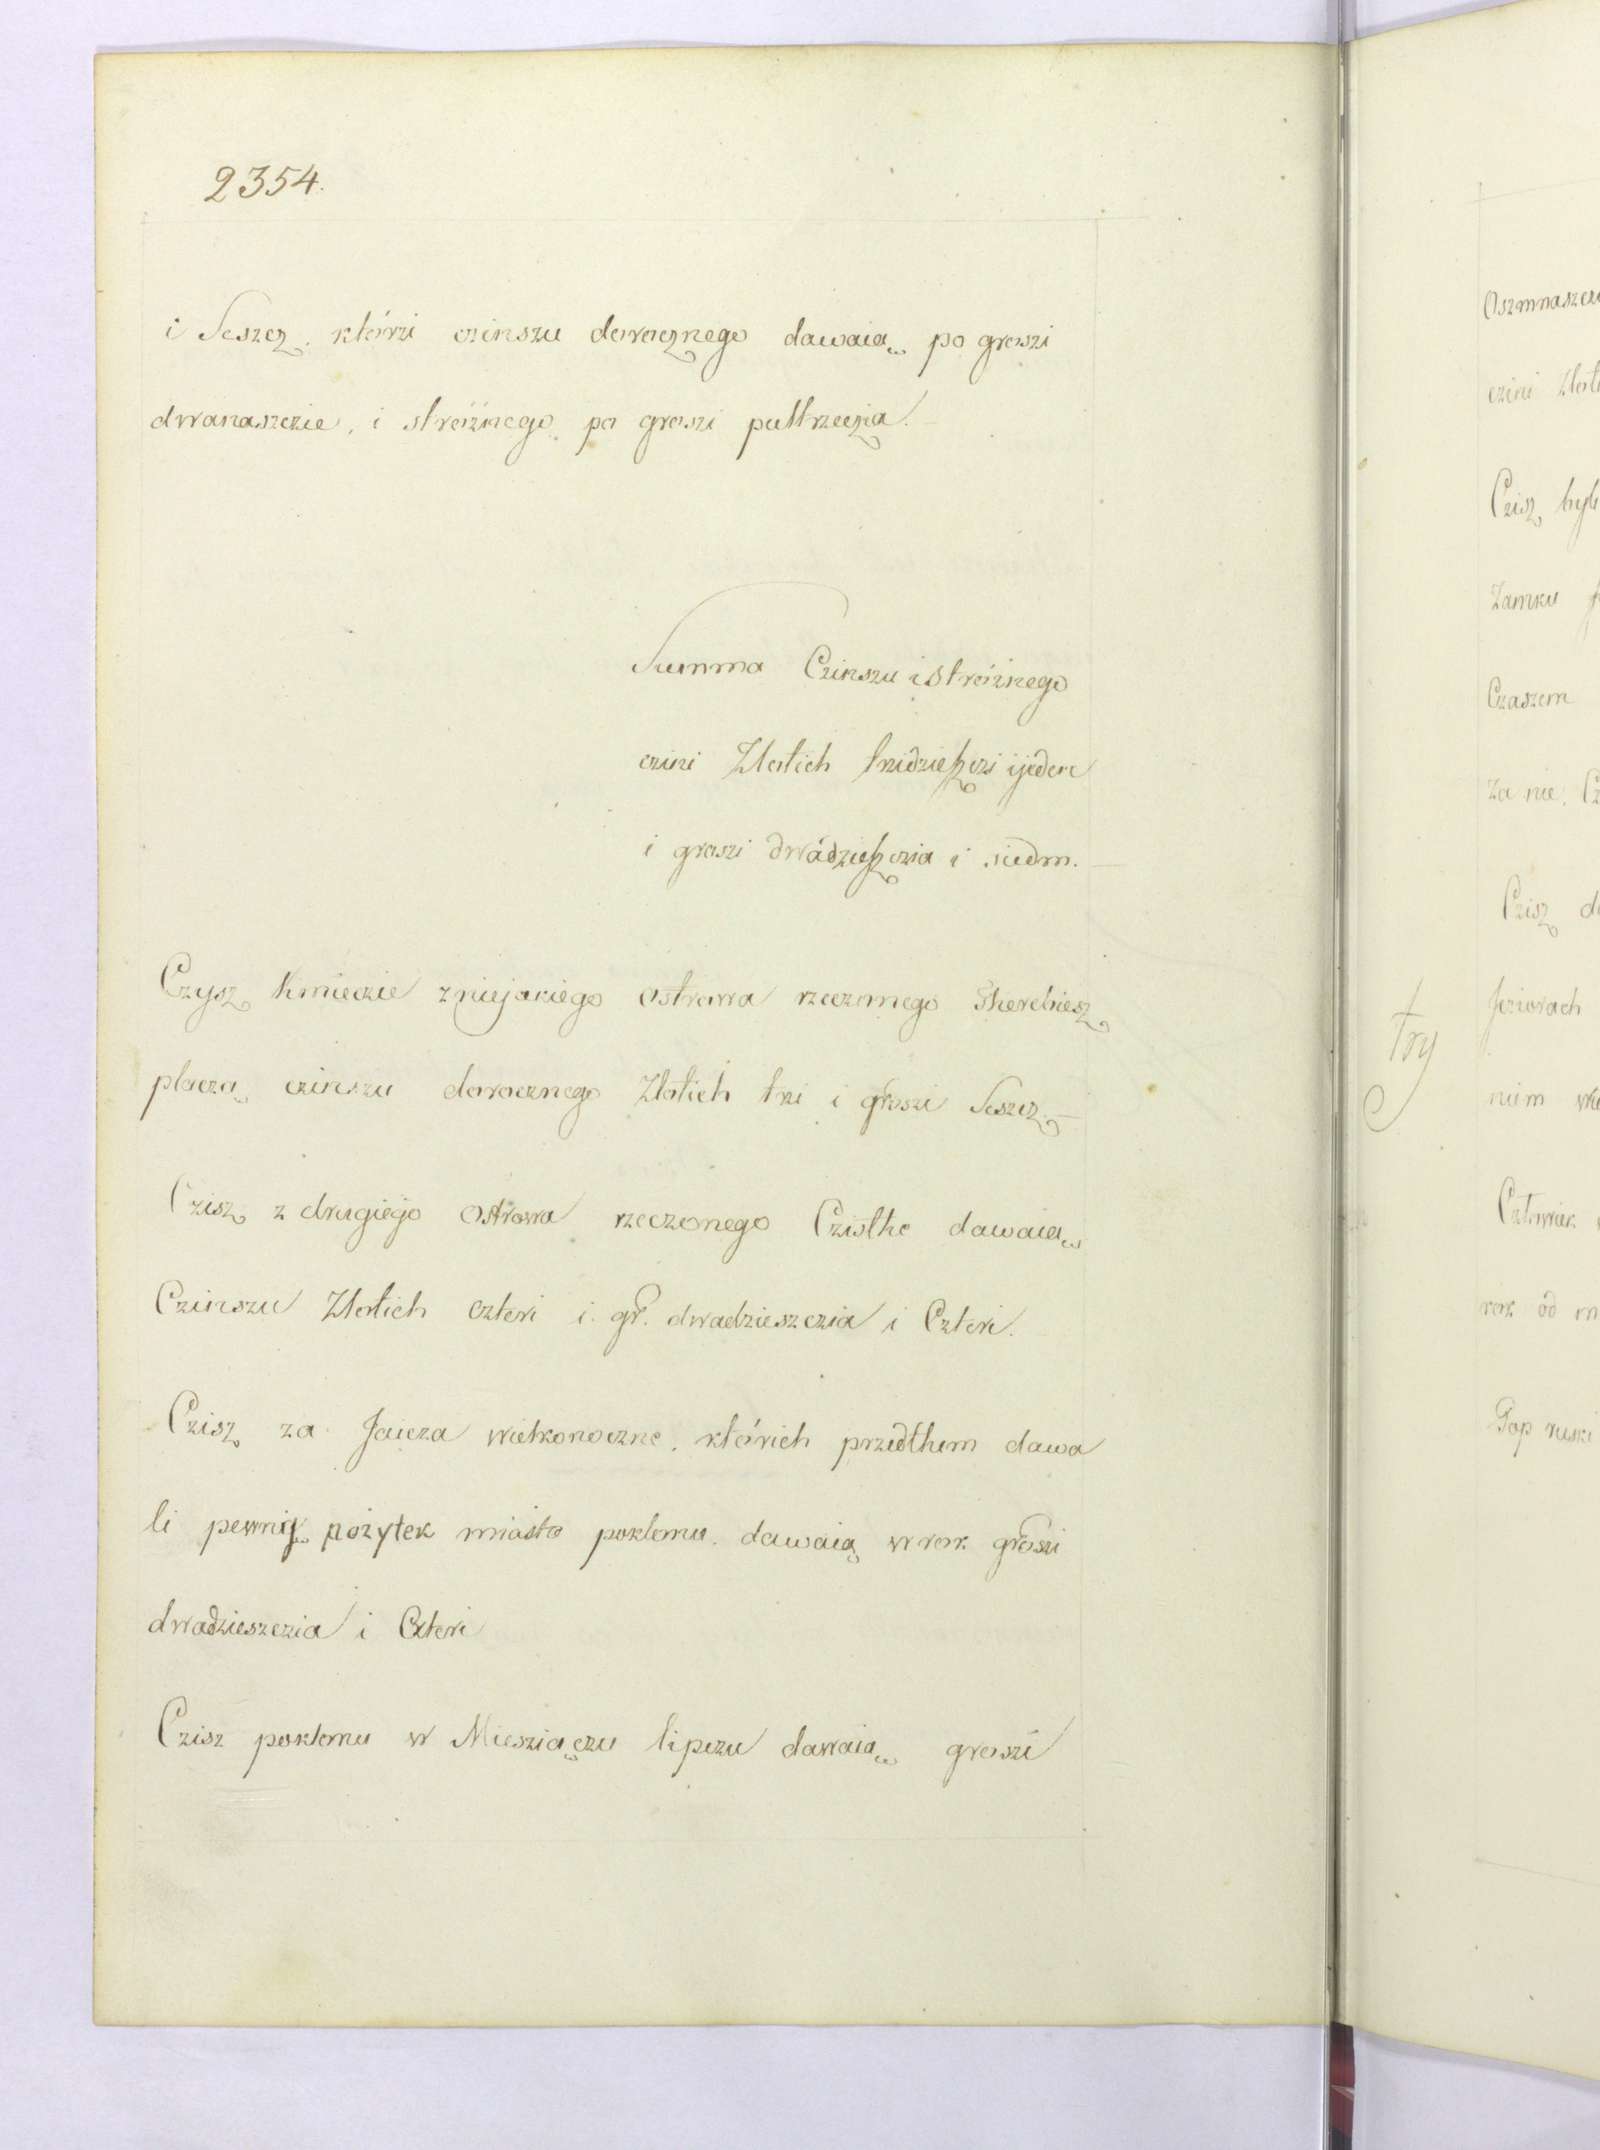 2354.
i Seszcz, którzi czinszu dorocznego dawaią po groszi
dwanaszczie, i stróżnego po groszi pułtrzeczia.
Summa Czinszu i stróżnego
czini Złotich trzidzieszczi i jeden
i groszi dwádzieszczia i siedm.
Czysz kmieczie z niejakiego ostrowa rzeczonego
płaczą czinszu dorocznego Złotich trzi i groszi Seszcz
Czisz z drugiego ostrowa rzeczonego Czisthe dawaią
Czinszu Złotich czteri i gr. dwadzieszczia i Czteri.
Czisz za Jaicza wielkonoczne, którich przedthem dawa
li pewnię pożytek miasto pokłonu dawaią w rok groszi
dwadzieszczia i Czteri
Czisz pokłonu w Miesziączu lipczu dawaią groszi
try
Oszmnaszcz
czini Złoti
Czisz
Zamku
Czaszem
za nie,
Czisz
Jeziorach
nim
Człowiek
rok od
Pop ruski